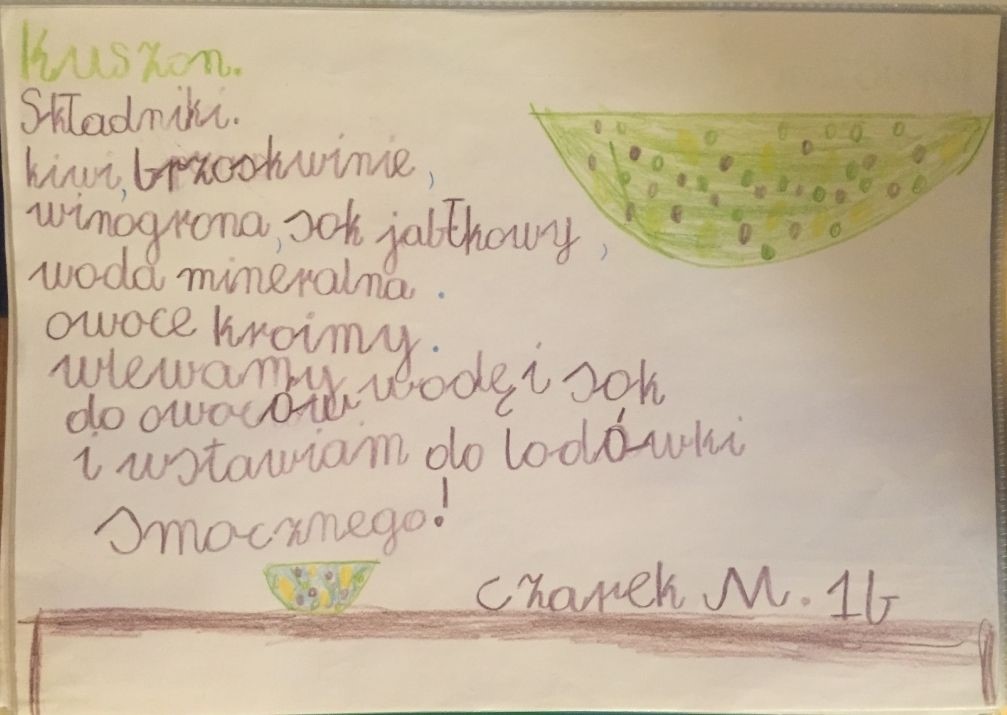 Kuszon.
Składniki.
kiwi, brzoskwinie,
winogrona, sok jabłkowy,
woda mineralna.
owoce kroimy.
wlewamy wodę i sok
do owoców
i wstawiam do lodówki
Smacznego!
Czarek M. 1b